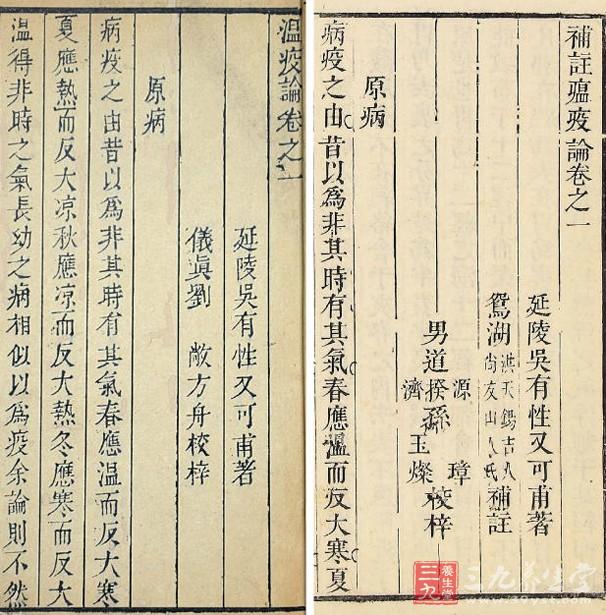 補註瘟疫論卷之一
延陵吳有性又可甫著
鴛湖洪天錫吉人尚友山人氏補註
源璋
男道揆孫校梓
濟玉燦
原病
病疫之由昔以爲非其時有其氣春應溫而反大寒夏
温疫論卷之一
延陵吳有性又可甫著
儀眞劉 敞方舟校梓
原病
病疫之由昔以爲非其時有其氣春應温而反大寒
夏應熱而反大凉秋應凉而反大熱冬應寒而反大
温得非時之氣長幼之病相似以爲疫余論則不然
三九
養生堂
三九养生堂